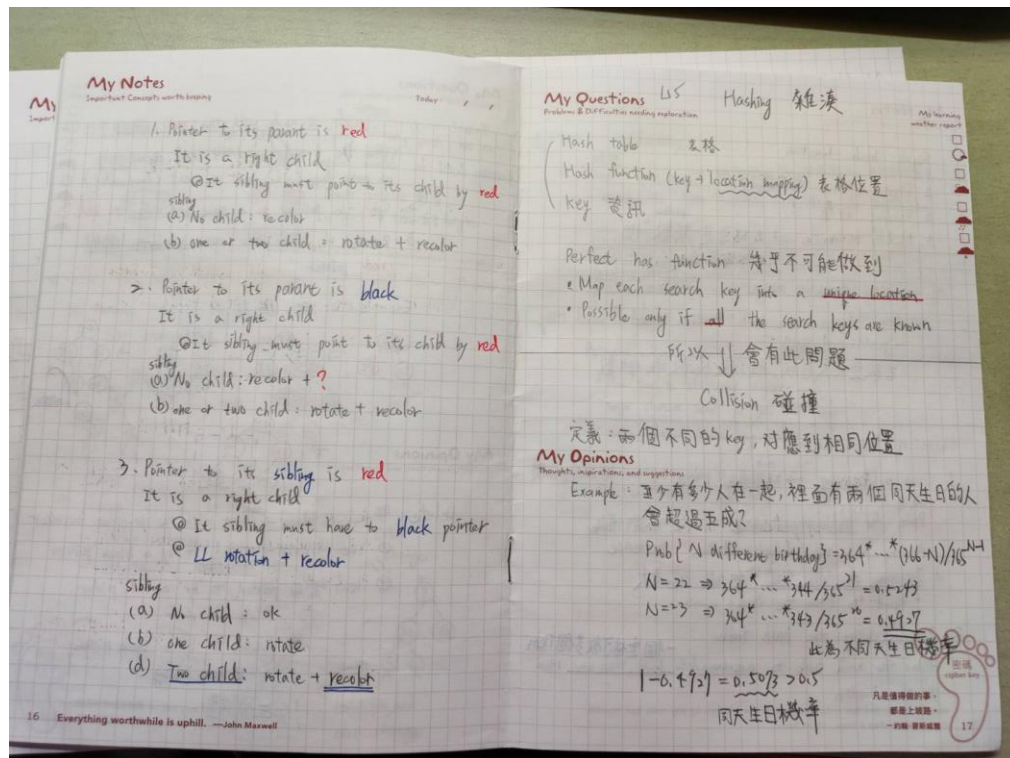 My Notes
Important Concepts worth keeping
Today , ,
1. Pointer to its parant is red
It is a right child
@It sibling must point to its child by red
sibling
(a) No child : recolor
(b) one or two child : rotate + recolor
2. Pointer to its parant is black
It is a right child
@It sibling must point to its child by red
sibling
(a) No child : recolor + ?
(b) one or two child : rotate + recolor
3. Pointer to its sibling is red
It is a right child
@ It sibling must have to black pointer
@ LL rotation + recolor
sibling
(a) No child : ok
(b) one child : rotate
(d) Two child : rotate + recolor
16 Everything worthwhile is uphill. —John Maxwell
My
Import
My Questions
Problems & Difficulties needing exploration
L15 Hashing 雜湊
My learning
weather report
Hash table 表格
Hash function (key → location mapping) 表格位置
key 資訊
Perfect has function 幾乎不可能做到
• Map each search key into a unique location
• Possible only if all the search keys are known
所以 ⇓ 會有此問題
Collision 碰撞
定義 : 兩個不同的key, 对應到相同位置
My Opinions
Thoughts, inspirations, and suggestions
Example : 至少有多少人在一起, 裡面有兩個同天生日的人
會超過五成?
Prob{ N different birthday} = 364*...*(366-N)/365^N-1
N=22 ⇒ 364*...*344/365^21 = 0.5243
N=23 ⇒ 364*...*343/365^22 = 0.4927
此為不同天生日機率
1-0.4927 = 0.5073 > 0.5
同天生日機率
密碼
cipher key
凡是值得做的事，
都是上坡路。
17